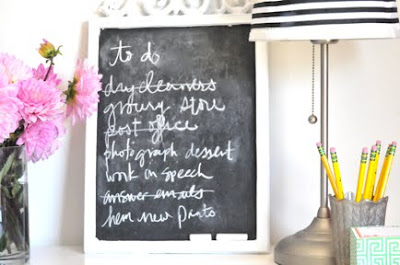 to do
dry cleaners
grocery store
post office
photograph dessert
work on speech
answer emails
hem new pants